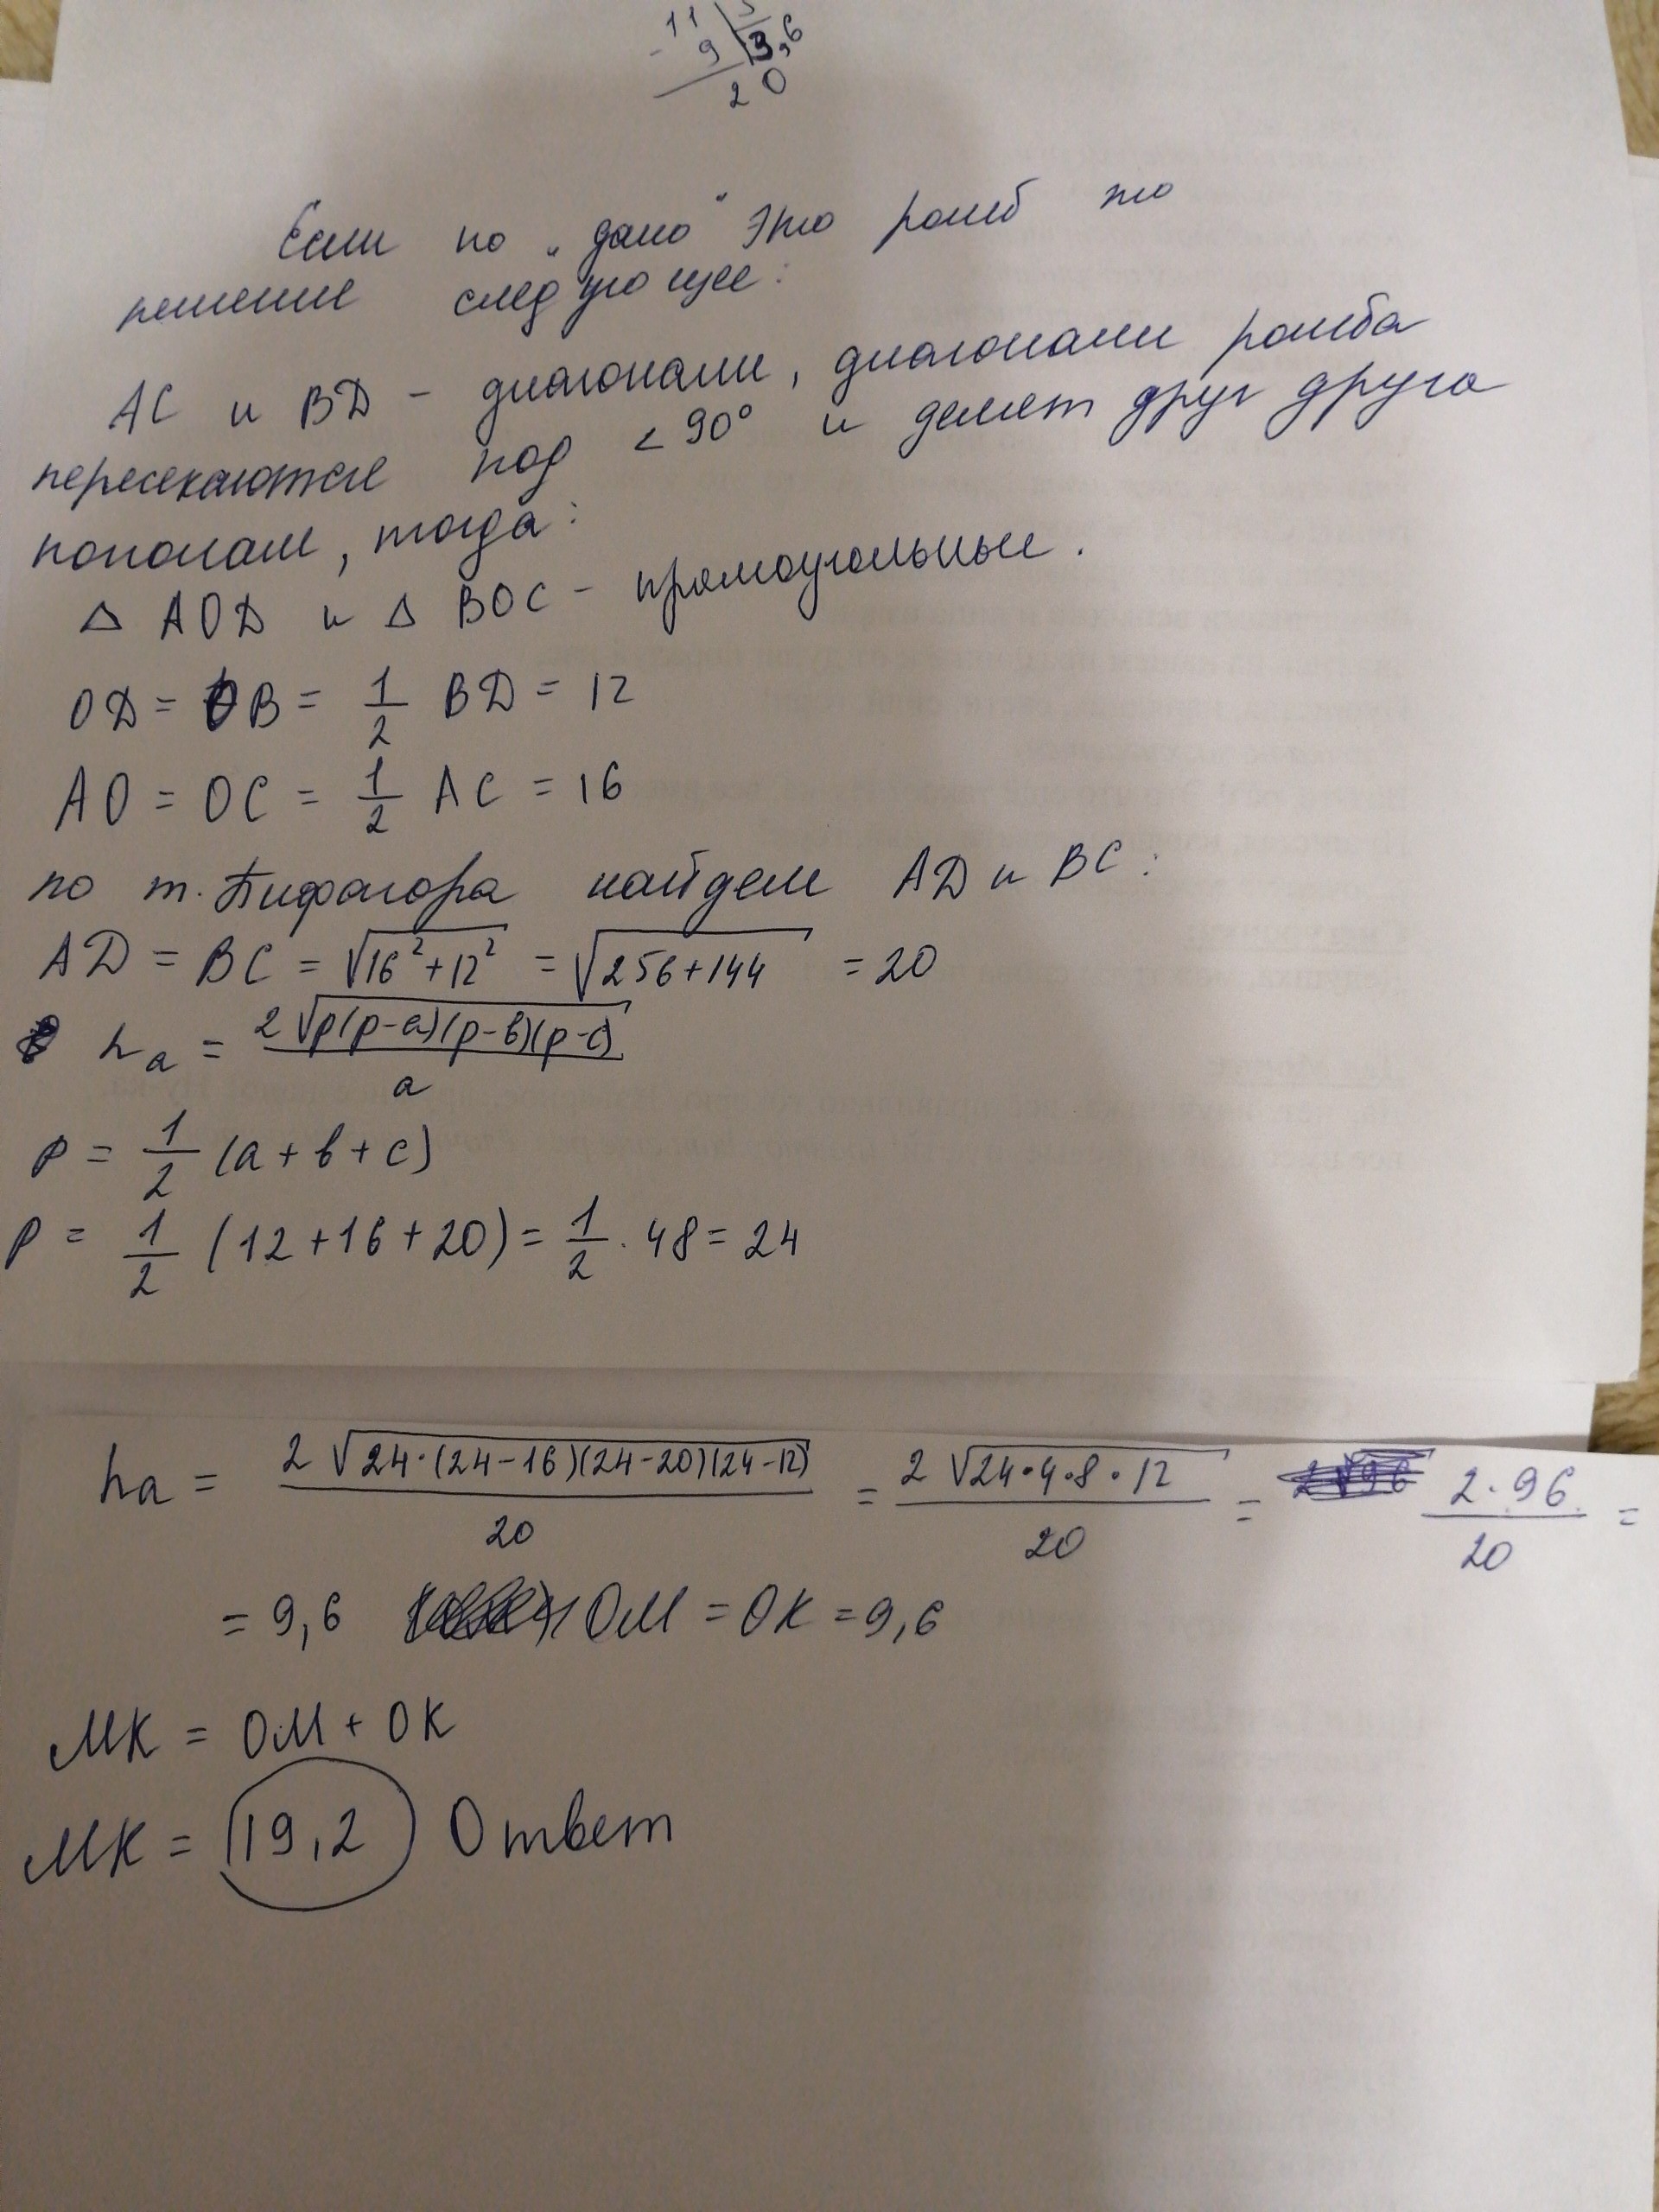 -11 3
9 3,6
20
Если по "дано" это ромб то
решение следующее:
AC и BD - диагонали, диагонали ромба
пересекаются под < 90° и делят друг друга
пополам, тогда:
△ AOD и △ BOC - прямоугольные.
OD = OB = 1/2 BD = 12
AO = OC = 1/2 AC = 16
по т. Пифагора найдем AD и BC:
AD = BC = √(16²+12²) = √(256+144) = 20
h_a = 2√(p(p-a)(p-b)(p-c)) / a
p = 1/2 (a+b+c)
p = 1/2 (12+16+20) = 1/2 · 48 = 24
ha = 2√(24·(24-16)(24-20)(24-12)) / 20 = 2√(24·4·8·12) / 20 = 2·96 / 20 =
= 9,6 OM = OK = 9,6
MK = OM + OK
MK = 19,2 Ответ